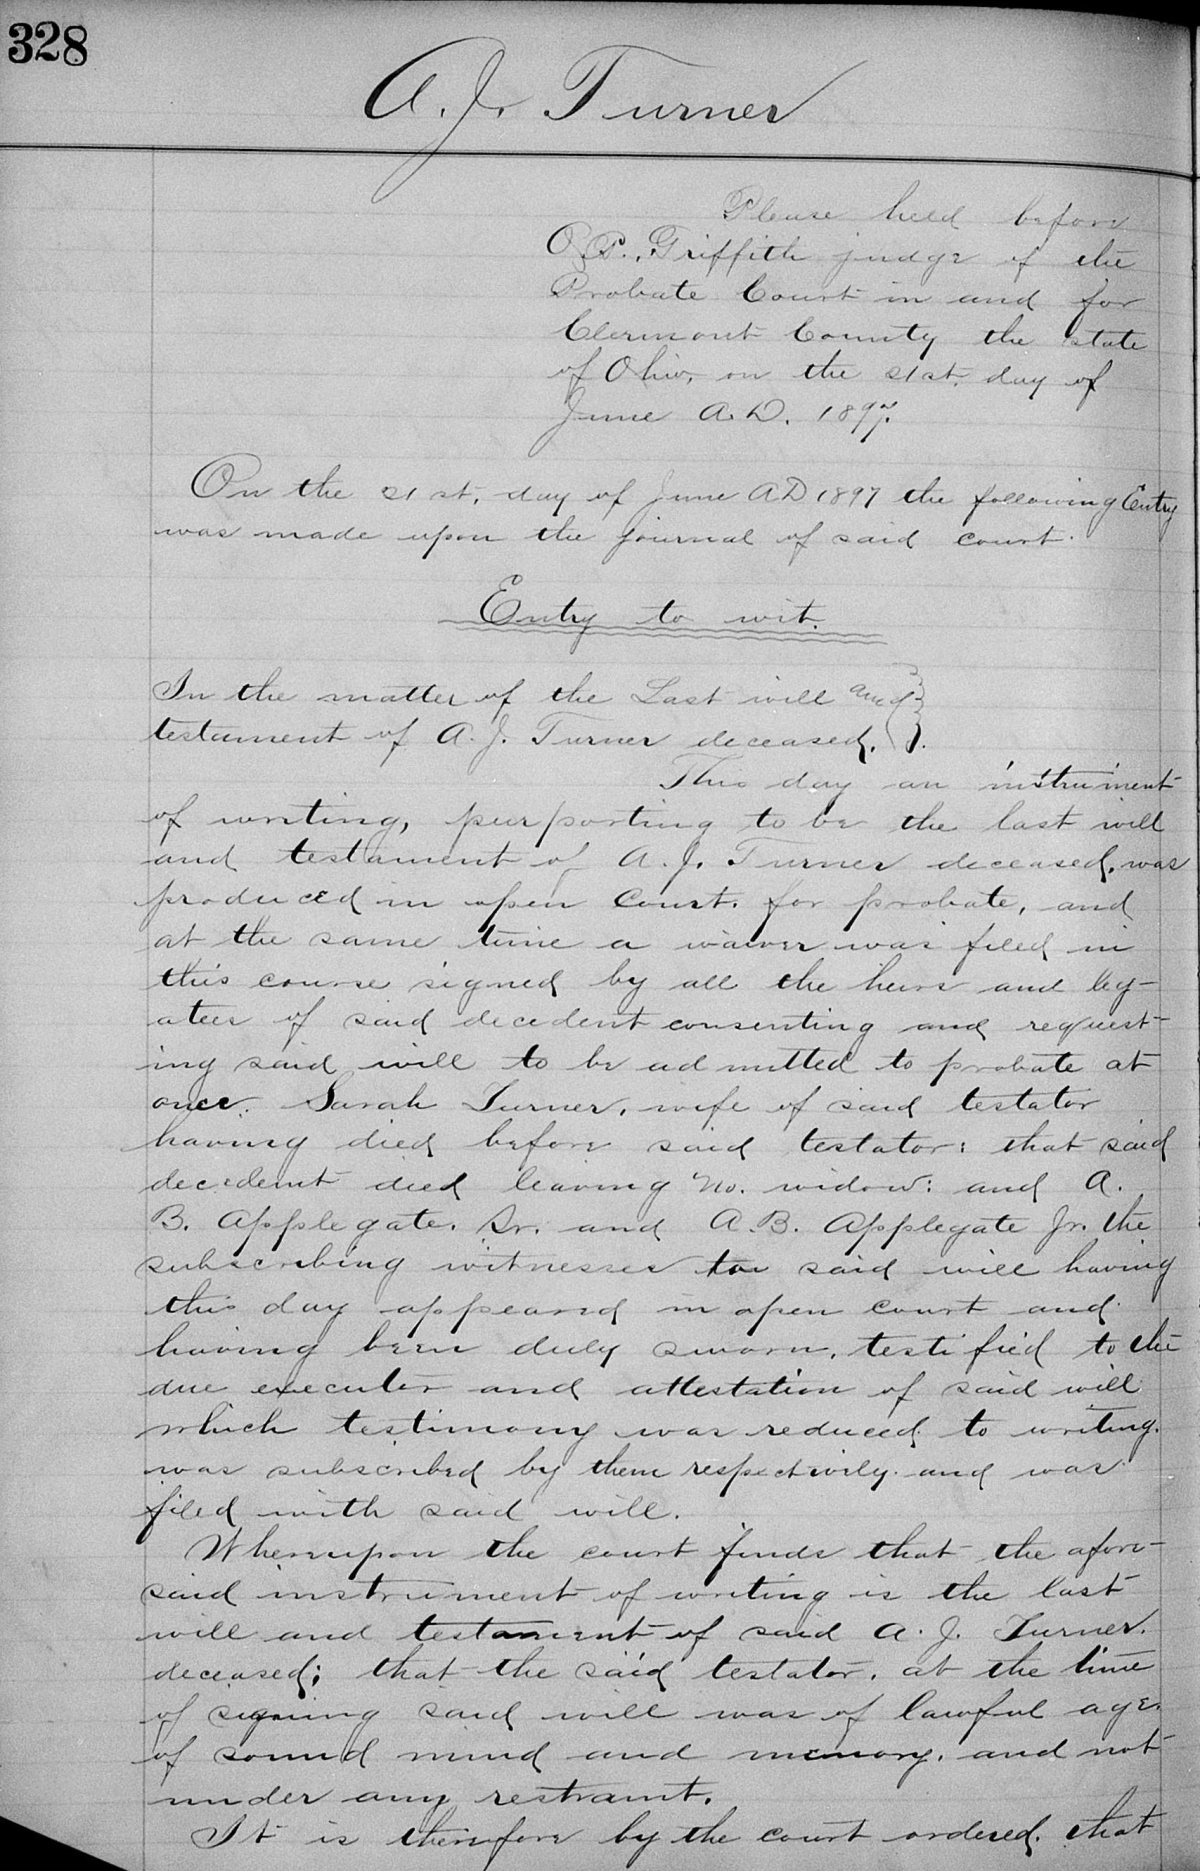 328
A. J. Turner
Please held before
O. P. Griffith judge of the
Probate Court in and for
Clermont County the state
of Ohio, on the 21st. day of
June A.D. 1897.
On the 21st. day of June AD 1897 the following Entry
was made upon the journal of said court.
Entry to wit.
In the matter of the Last will and
testament of A. J. Turner deceased.
This day an instrument
of writing, purporting to be the last will
and testament of A. J. Turner deceased, was
produced in open Court. for probate, and
at the same time a waiver was filed in
this course signed by all the heirs and leg-
atees of said decedent consenting and request-
ing said will to be admitted to probate at
once. Sarah Turner, wife of said testator
having died before said testator: that said
decedent died leaving no. widow: and A.
B. Applegate. Sr. and A. B. Applegate Jr. the
subscribing witnesses to said will having
this day appeared in open court and
having been duly sworn, testified to the
due executer and attestation of said will
which testimony was reduced to writing.
was subscribed by them respectively. and was
filed with said will.
Whereupon the court finds that the afore-
said instrument of writing is the last
will and testament of said A. J. Turner.
deceased; that the said testator. at the time
of signing said will was of lawful age.
of sound mind and memory. and not
under any restraint.
It is therefore by the court ordered. that